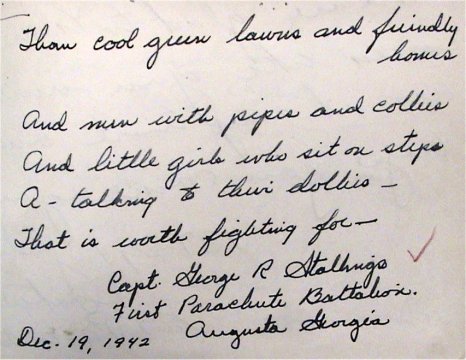 Than cool green lawns and friendly
homes
And men with pipes and collies
And little girls who sit on steps
A-talking to their dollies —
That is worth fighting for —
Capt. George R Stallings
First Parachute Battalion.
Augusta Georgia
Dec. 19, 1942